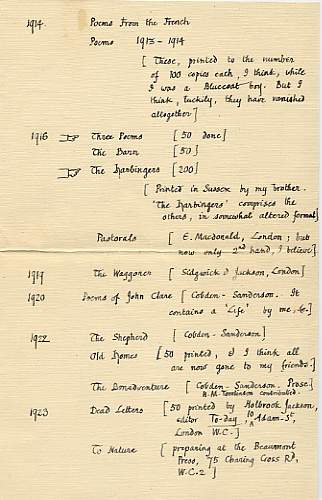 1914. Poems from the French
Poems 1913-1914
[These, printed to the number
of 100 copies each, I think, while
I was a Bluecoat boy. But I
think, luckily, they have vanished
altogether]
1916 Three Poems [50 done]
The Barn [50]
The Harbingers [200]
[Printed in Sussex by my brother.
'The Harbingers' comprises the
others, in somewhat altered format]
Pastorals [E. Macdonald, London; but
now only 2nd hand, I believe]
1917 The Waggoner [Sidgwick & Jackson, London]
1920 Poems of John Clare [Cobden-Sanderson. It
contains a 'Life' by me, &c.]
1922 The Shepherd [Cobden-Sanderson]
Old Homes [50 printed, & I think all
are now gone to my friends.]
The Bonadventure [Cobden-Sanderson. Prose]
H.M. Tomlinson contributed.
1923 Dead Letters [50 printed by Holbrook Jackson,
editor To-day, 10 Adam St,
London W.C.]
To Nature [preparing at the Beaumont
Press, 75 Charing Cross Rd,
W.C.2]